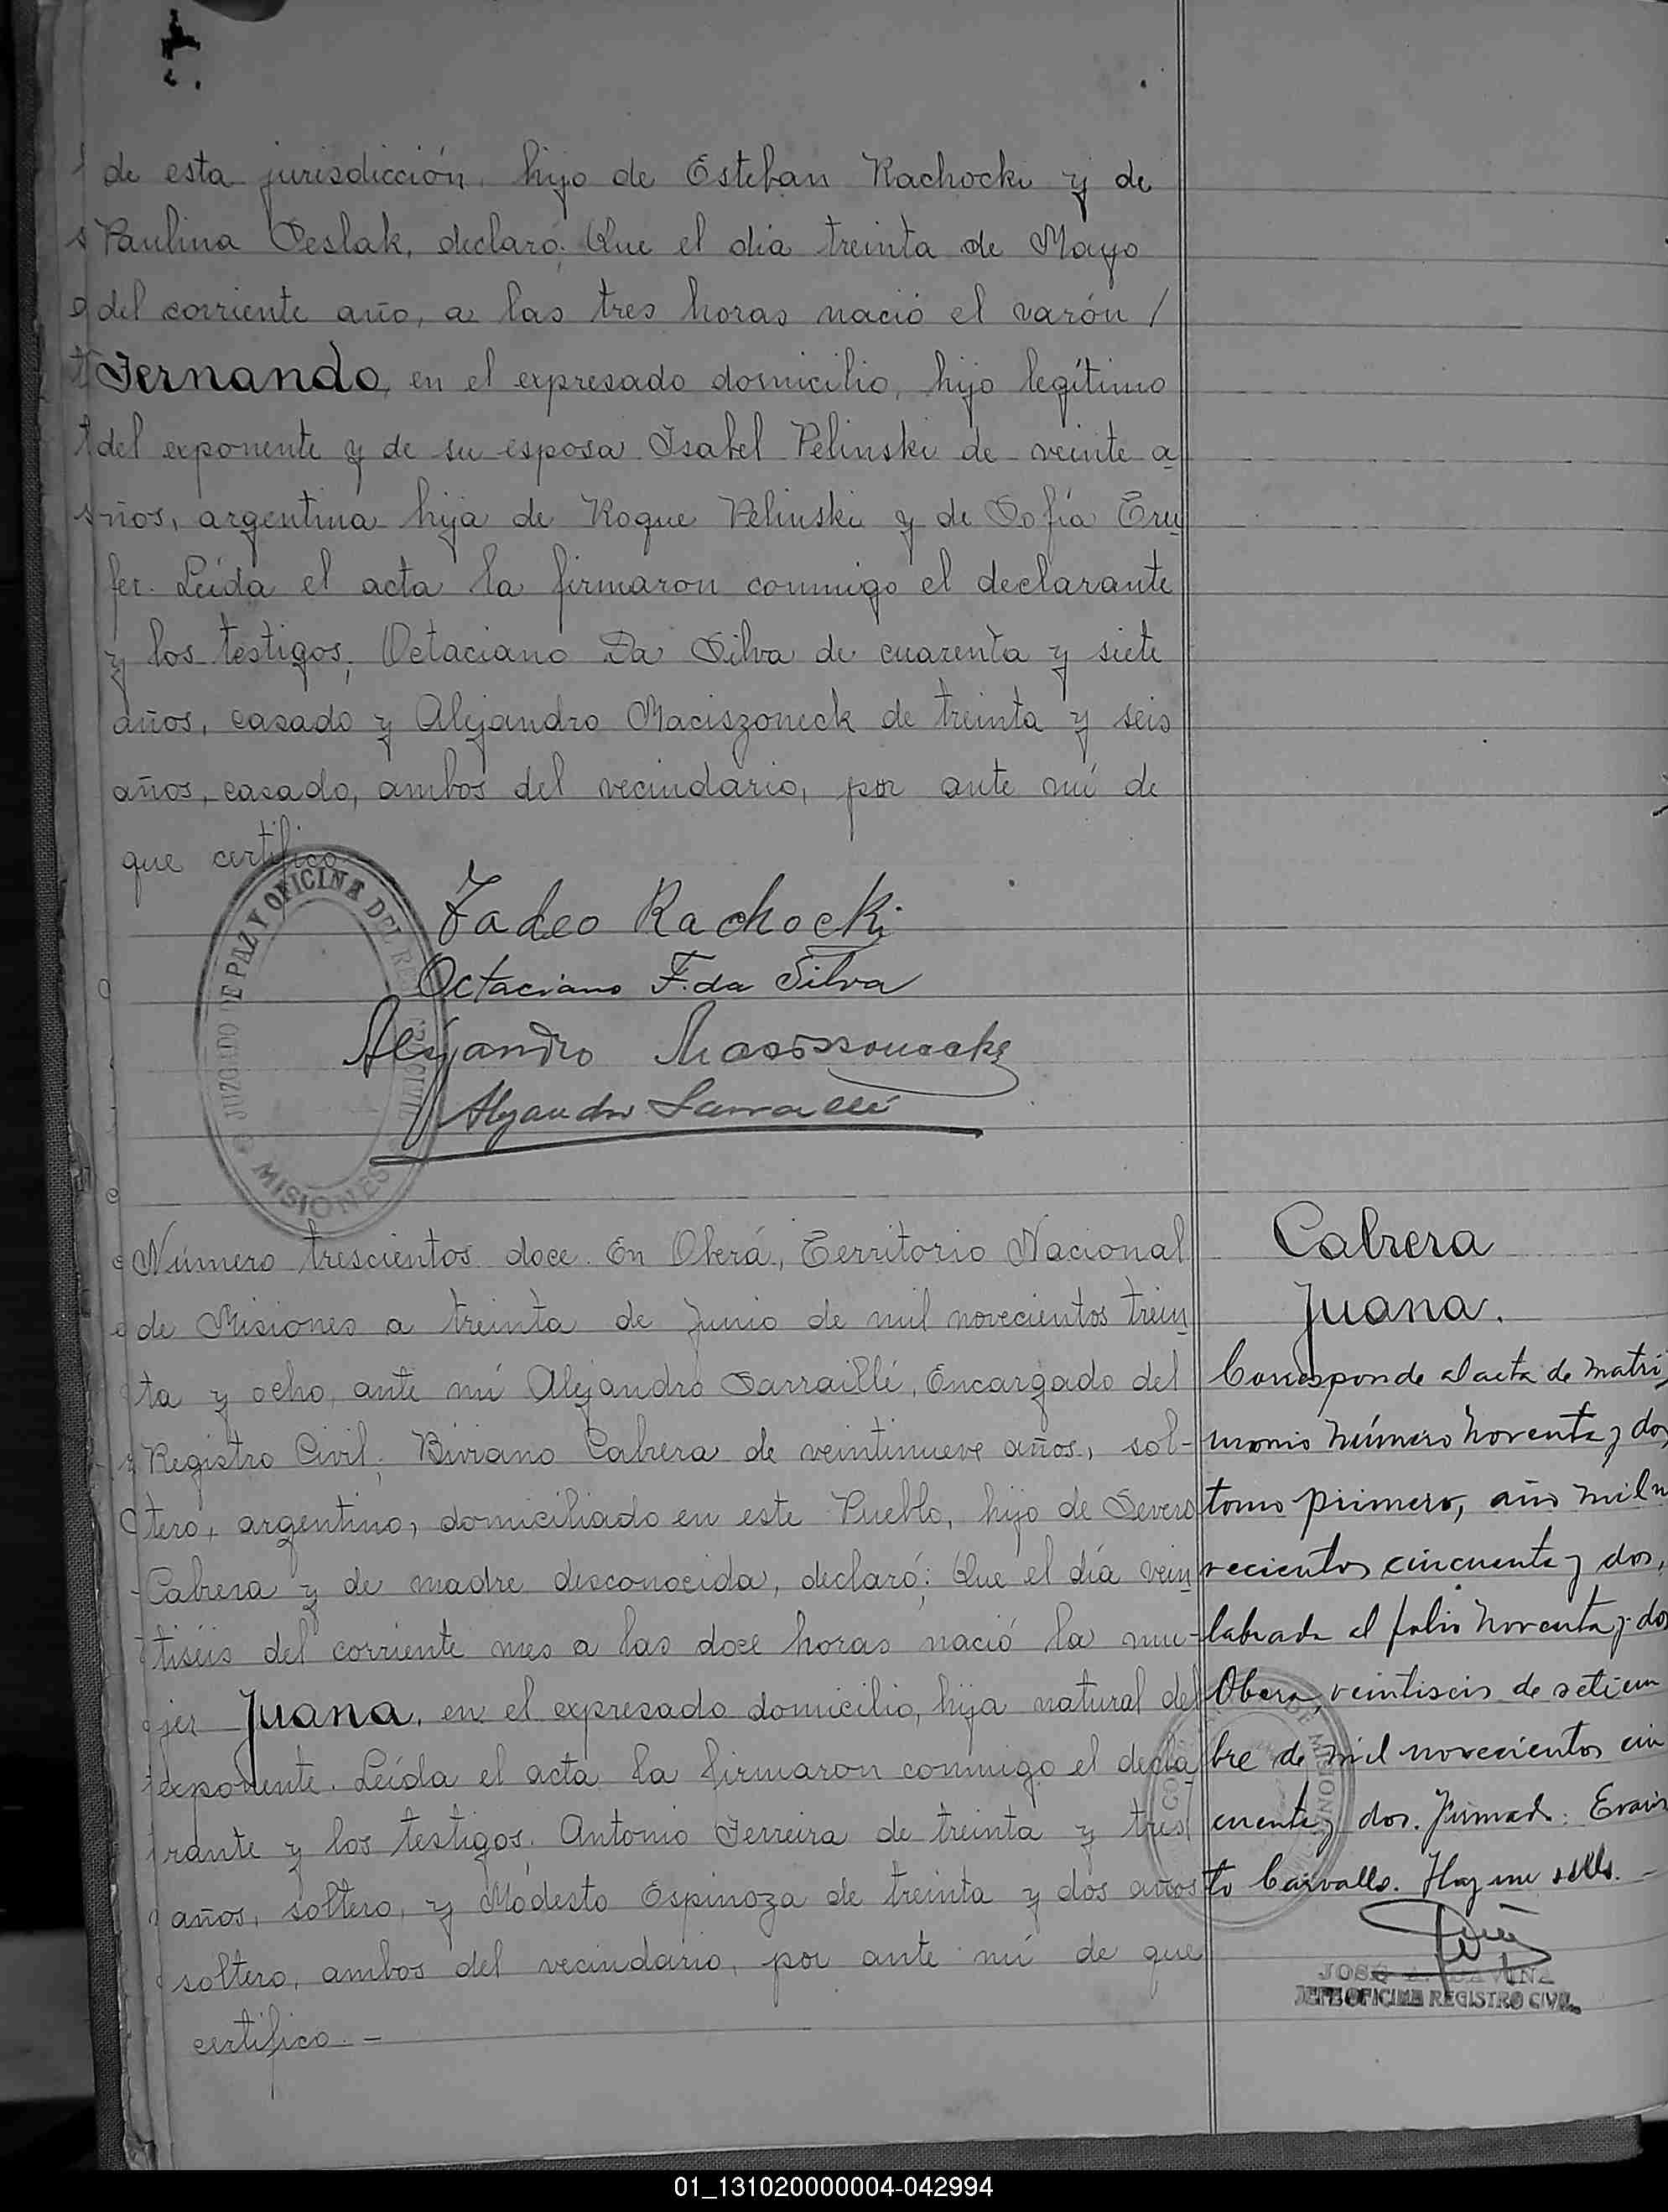 de esta jurisdicción, hijo de Esteban Rachocki y de
Paulina Peslak, declaró: Que el día treinta de Mayo
del corriente año, a las tres horas nació el varón /
Fernando, en el expresado domicilio, hijo legítimo
del exponente y de su esposa Isabel Pelinski de veinte a
ños, argentina hija de Roque Pelinski y de Sofía Tru
fer. Leída el acta la firmaron conmigo el declarante
y los testigos, Octaciano Da Silva de cuarenta y siete
años, casado y Alejandro Maciszoneck de treinta y seis
años, casado, ambos del vecindario, por ante mí de
que certifico.
JUZGADO DE PAZ Y OFICINA DEL REGISTRO CIVIL
MISIONES
Tadeo Rachocki
Octaciano F. da Silva
Alejandro
Alejandro Sarraillé
Número trescientos doce. En Oberá, Territorio Nacional
de Misiones a treinta de Junio de mil novecientos trein
ta y ocho, ante mí Alejandro Sarraillé, Encargado del
Registro Civil; Biviano Cabrera de veintinueve años, sol-
tero, argentino, domiciliado en este Pueblo, hijo de Severo
Cabrera y de madre desconocida, declaró: Que el día vein
tiséis del corriente mes a las doce horas nació la mu-
jer Juana, en el expresado domicilio, hija natural del
exponente. Leída el acta la firmaron conmigo el decla
rante y los testigos, Antonio Ferreira de treinta y tres
años, soltero, y Modesto Espinoza de treinta y dos años
soltero, ambos del vecindario, por ante mí de que
certifico. -
Cabrera
Juana.
Corresponde al acta de matri
monio número noventa y dos
tomo primero, año mil n
vecientos cincuenta y dos,
labrada al folio noventa y dos
Obera, veintiseis de setiem
bre de mil novecientos cin
cuenta y dos. Firmado: Evaris
to Carvallo. Hay un sello. -
JEFE OFICINA REGISTRO CIVIL
01_131020000004-042994